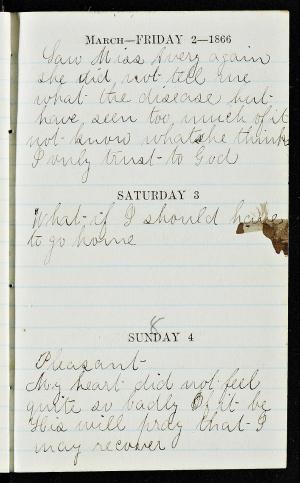 March—FRIDAY 2—1866
Saw Miss Avery again
she did, not tell me
what the disease but
have, seen too, much of it
not know what she thinks
I only trust to God
SATURDAY 3
What, if I should have
to go home
8
SUNDAY 4
Pleasant-
My heart did not feel
quite so badly O, if it be
His will pray that I
may recover